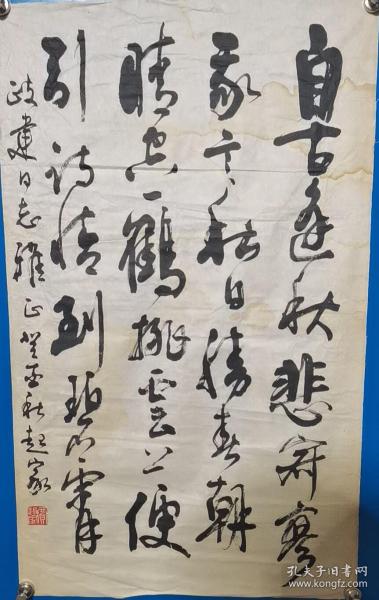 自古逢秋悲寂寥
我言秋日胜春朝
晴空一鹤排云上便
引诗情到碧霄
建同志雅正癸亥秋起家
孔夫子旧书网
www.kongfz.com